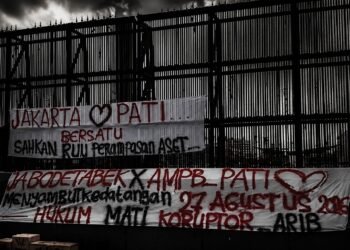 JAKARTA ♡ PATI...
BERSATU
SAHKAN RUU PERAMPASAN ASET...
JABODETABEK X AMPB_PATI ♡
MENYAMBUT KEDATANGAN 27 AGUSTUS 2025
HUKUM MATI KORUPTOR_ARIB